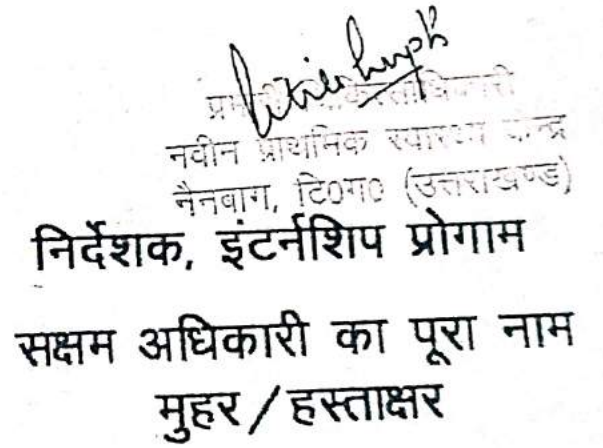 नवीन प्राथमिक स्वास्थ्य केन्द्र
नैनबाग, टि०ग० (उत्तराखण्ड)
निर्देशक, इंटर्नशिप प्रोगाम
सक्षम अधिकारी का पूरा नाम
मुहर / हस्ताक्षर